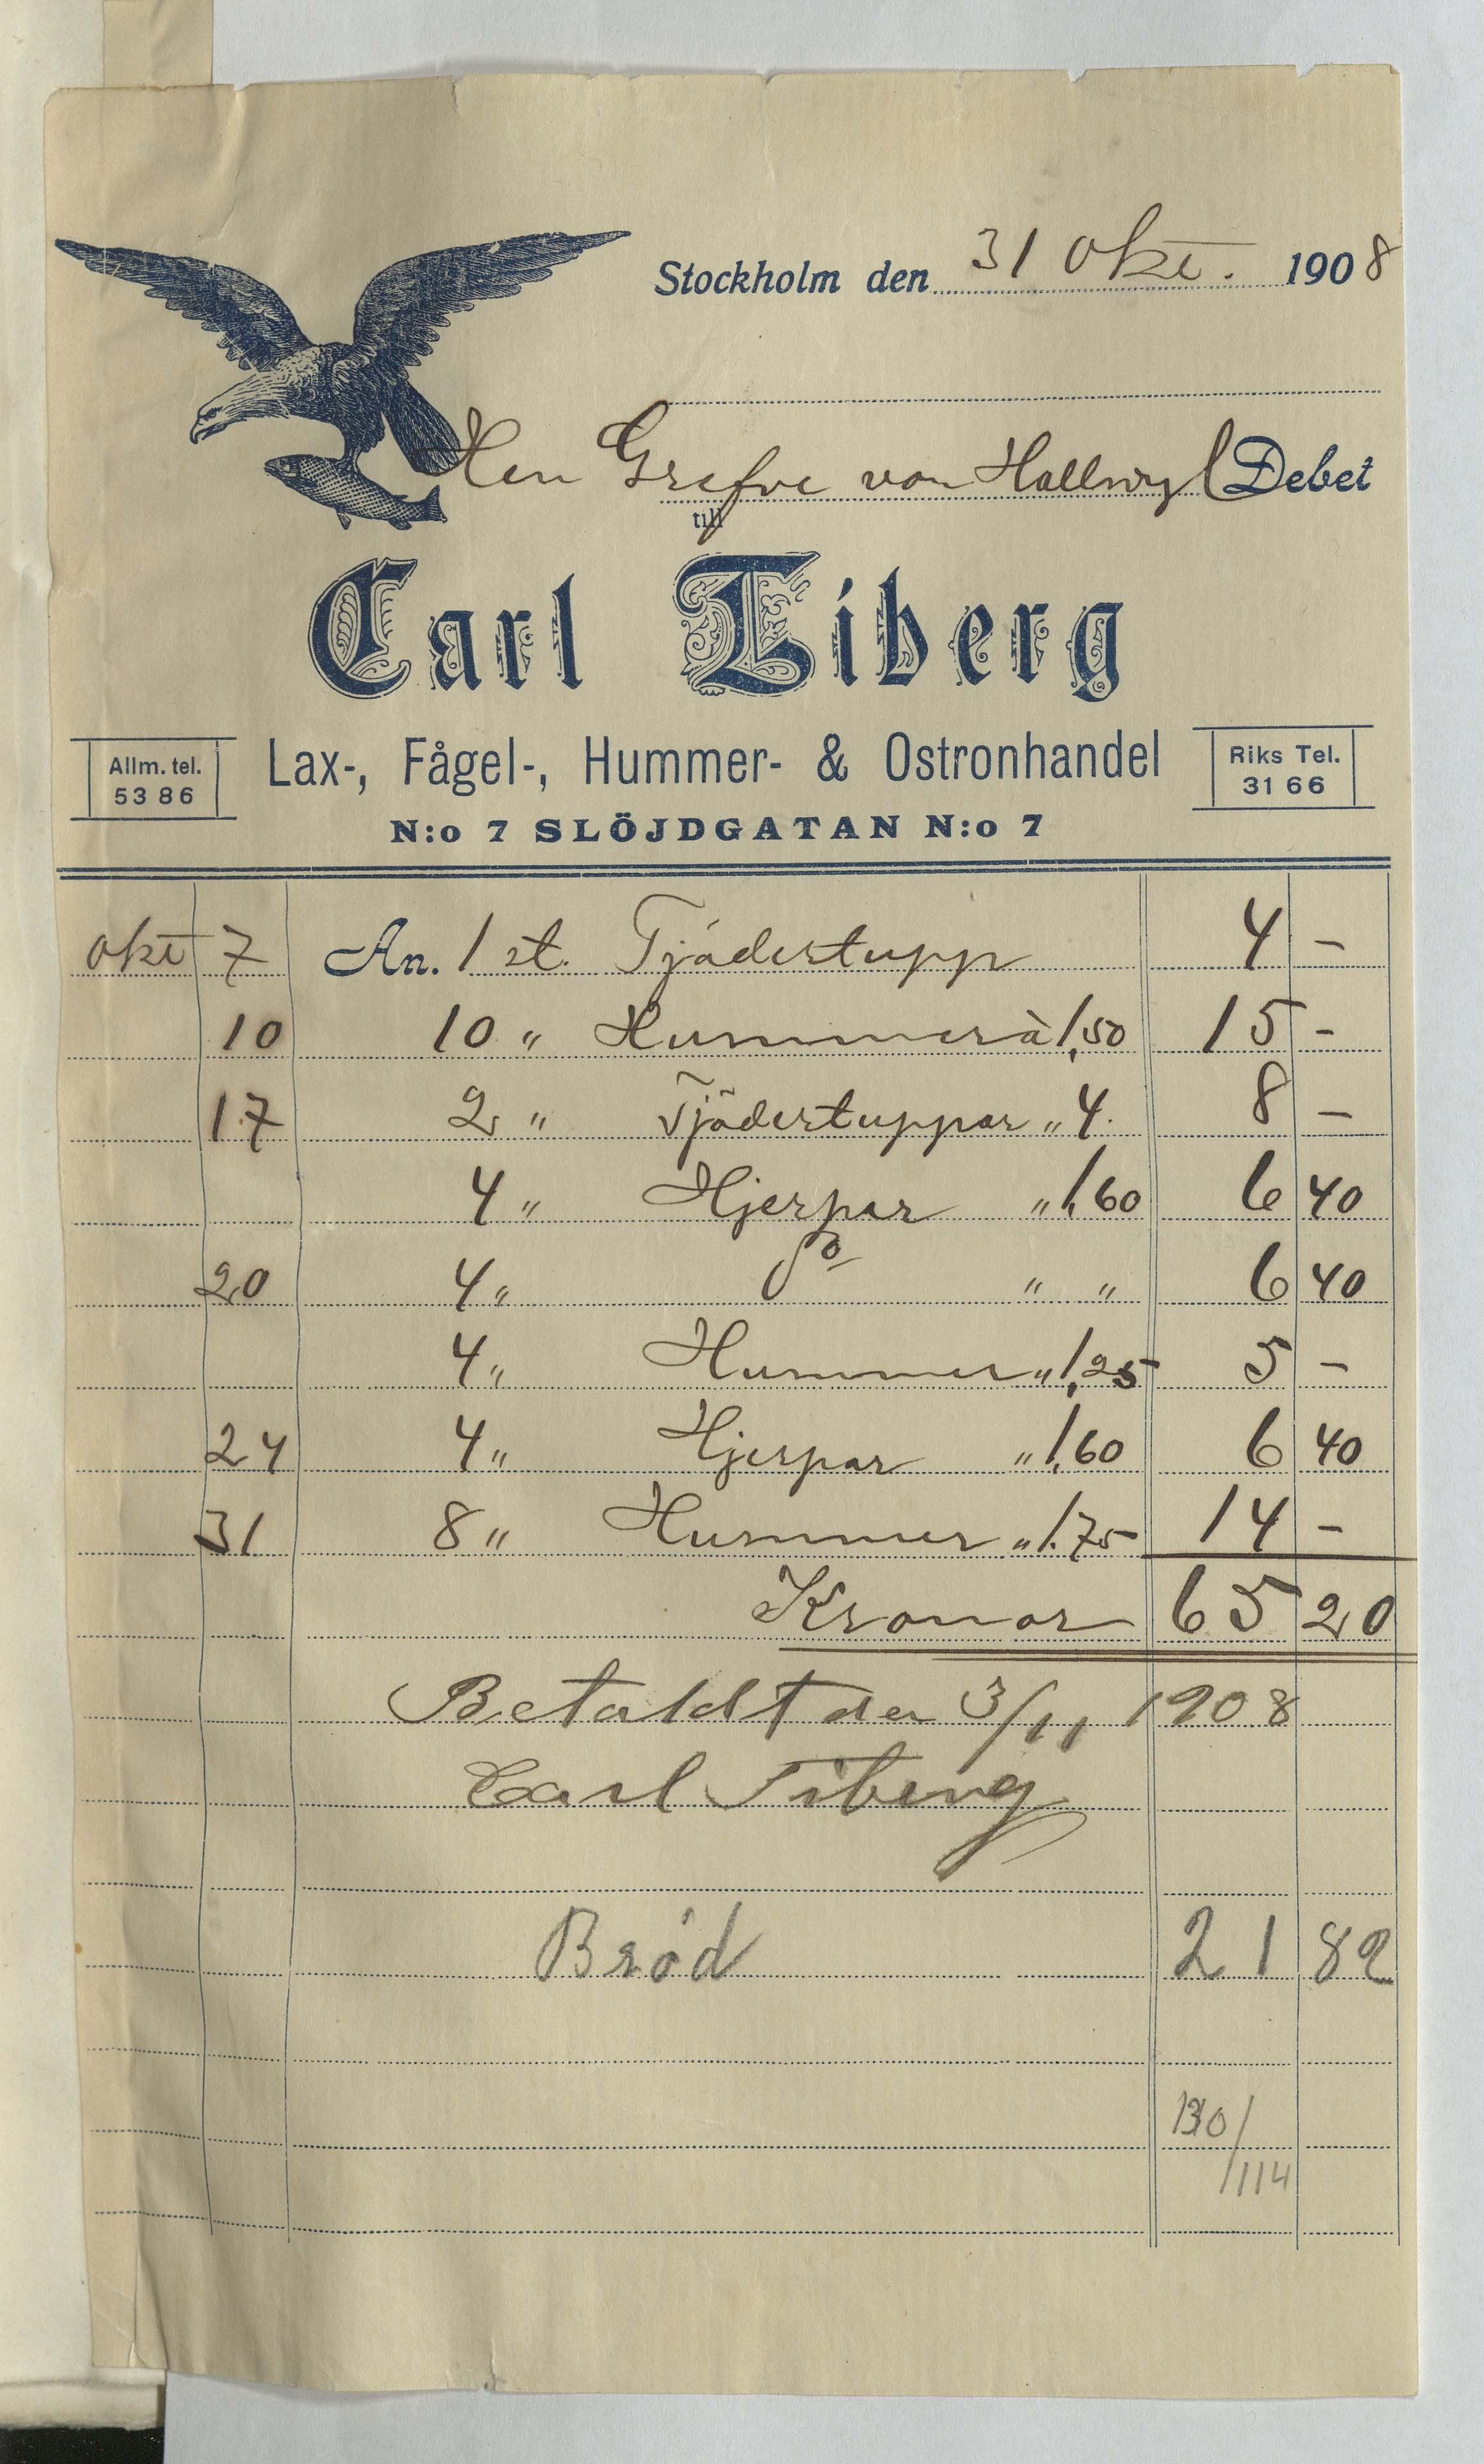 Stockholm den 31 Okt. 1908
Herr Grefve von Hallwyl Debet
till
Carl Tiberg
Allm. tel.
53 86
Lax-, Fågel-, Hummer- & Ostronhandel
Riks Tel.
31 66
N:o 7 SLÖJDGATAN N:o 7
okt 7 An. 1 st. Tjädertupp 4 –
10 10 " Hummer à 1,50 15 –
17 2 " Tjädertuppar " 4. 8 –
4 " Hjerpar " 1,60 6 40
20 4 " do " " 6 40
4 " Hummer " 1,25 5 –
24 4 " Hjerpar " 1,60 6 40
31 8 " Hummer " 1.75 14 –
Kronor 65 20
Betaldt den 3/11 1908
Carl Tiberg
Bröd 21 82
130/114